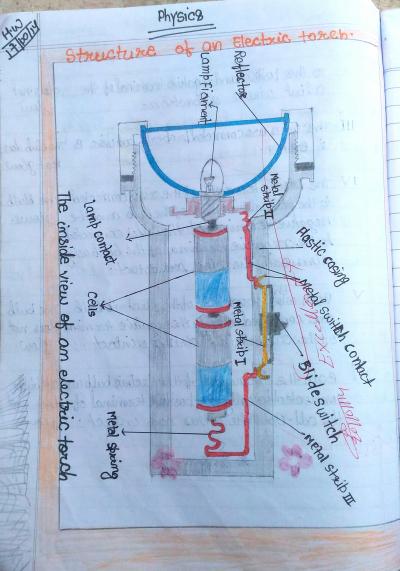 Physics
H.W
Structure of an Electric torch.
Reflector
Lamp Filament
Metal
strip II
Plastic casing
Metal switch contact
Slide switch
Metal strip III
Metal strip I
Lamp contact
Cells
Metal spring
The inside view of an electric torch